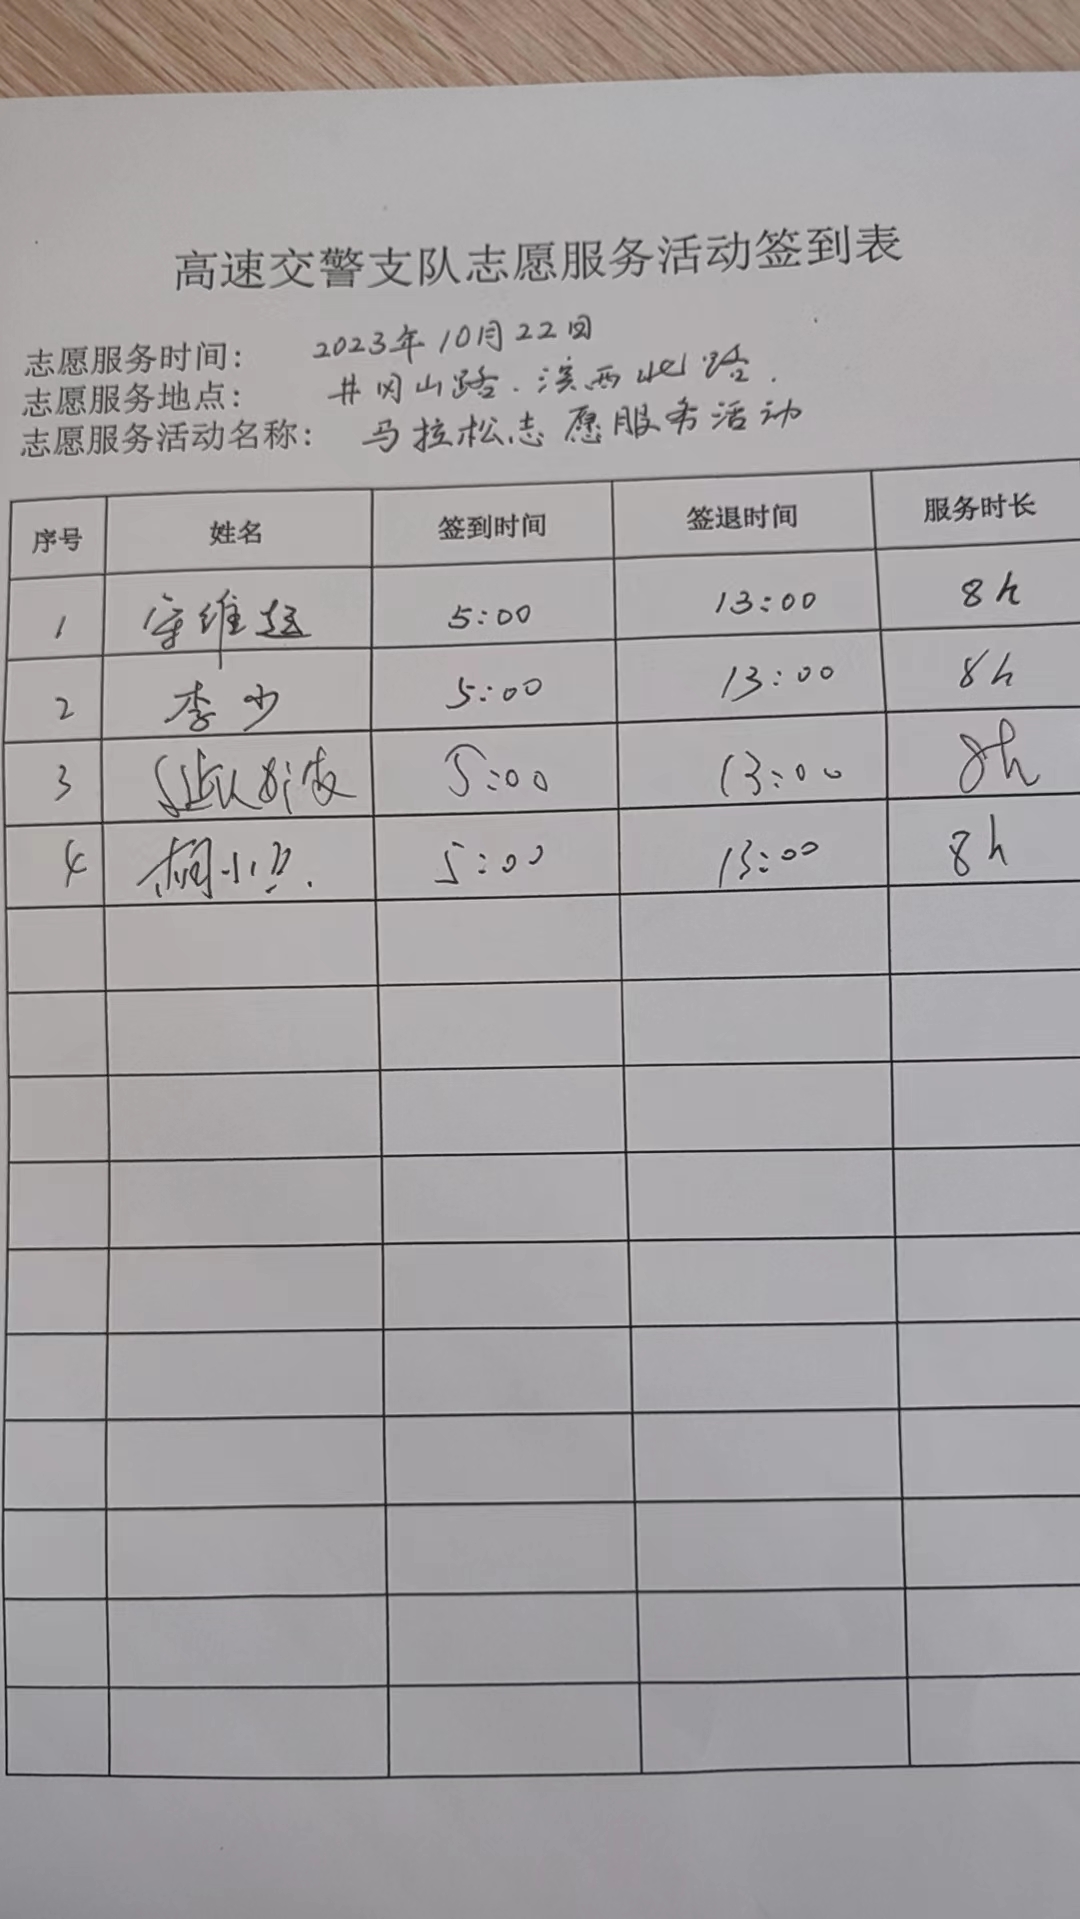 高速交警支队志愿服务活动签到表
志愿服务时间： 2023年10月22日
志愿服务地点： 井冈山路.滨西北路.
志愿服务活动名称： 马拉松志愿服务活动
序号 姓名 签到时间 签退时间 服务时长
1 维超 5:00 13:00 8h
2 李少 5:00 13:00 8h
3 5:00 13:00 8h
4 胡小 5:00 13:00 8h